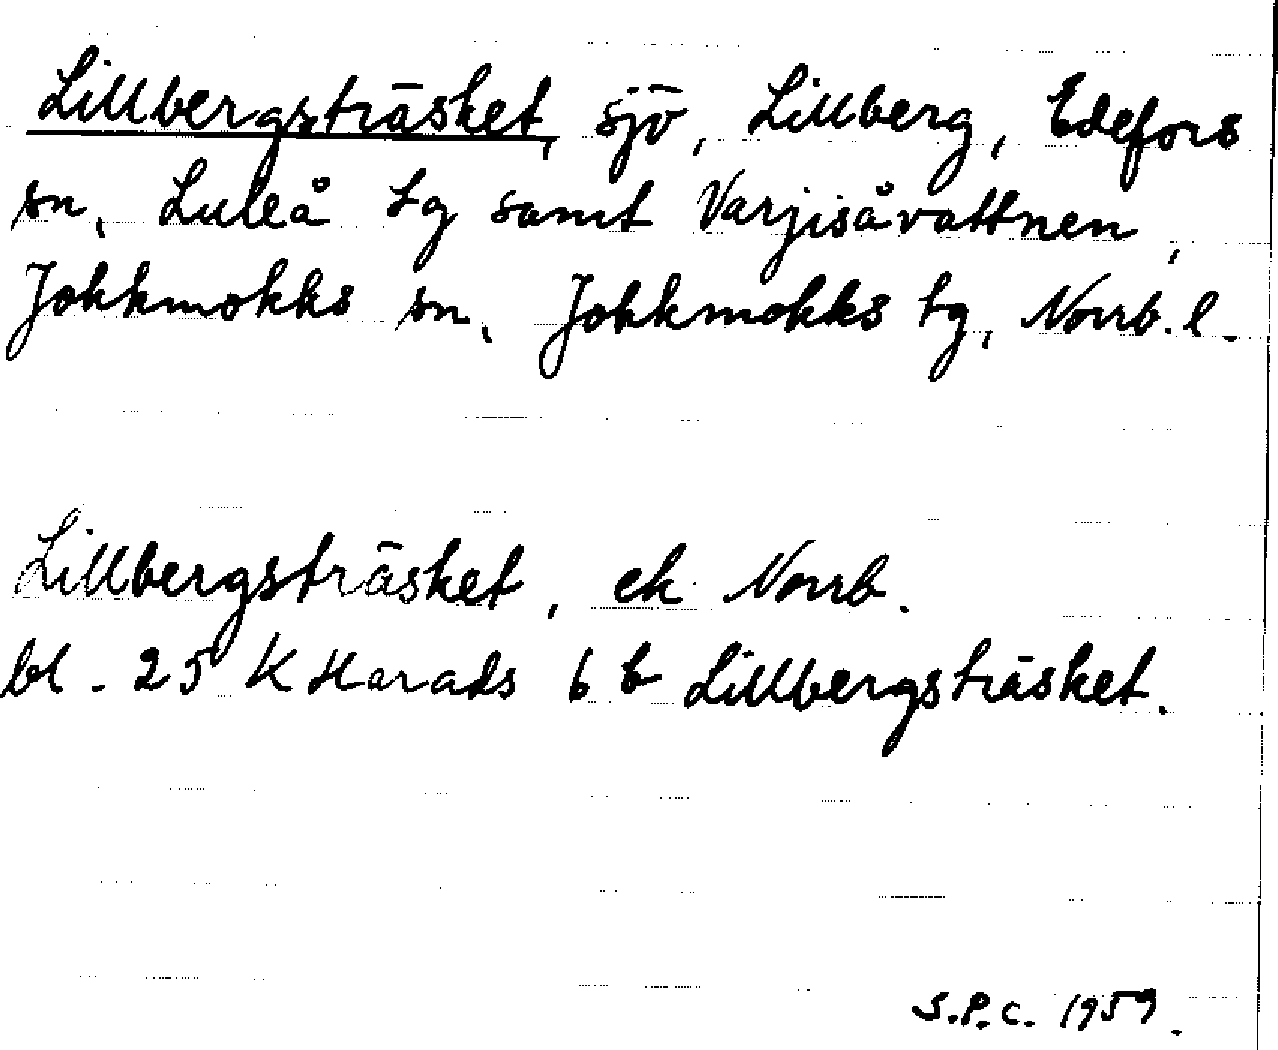 Lillbergsträsket, sjö, Lillberg, Edefors
sn, Luleå tg samt Varjisåvattnen,
Jokkmokks sn, Jokkmokks tg, Norrb. l.
Lillbergsträsket, ek Norrb.
bl. 25 K Harads 6 b Lillbergsträsket.
S.P.C. 1959.